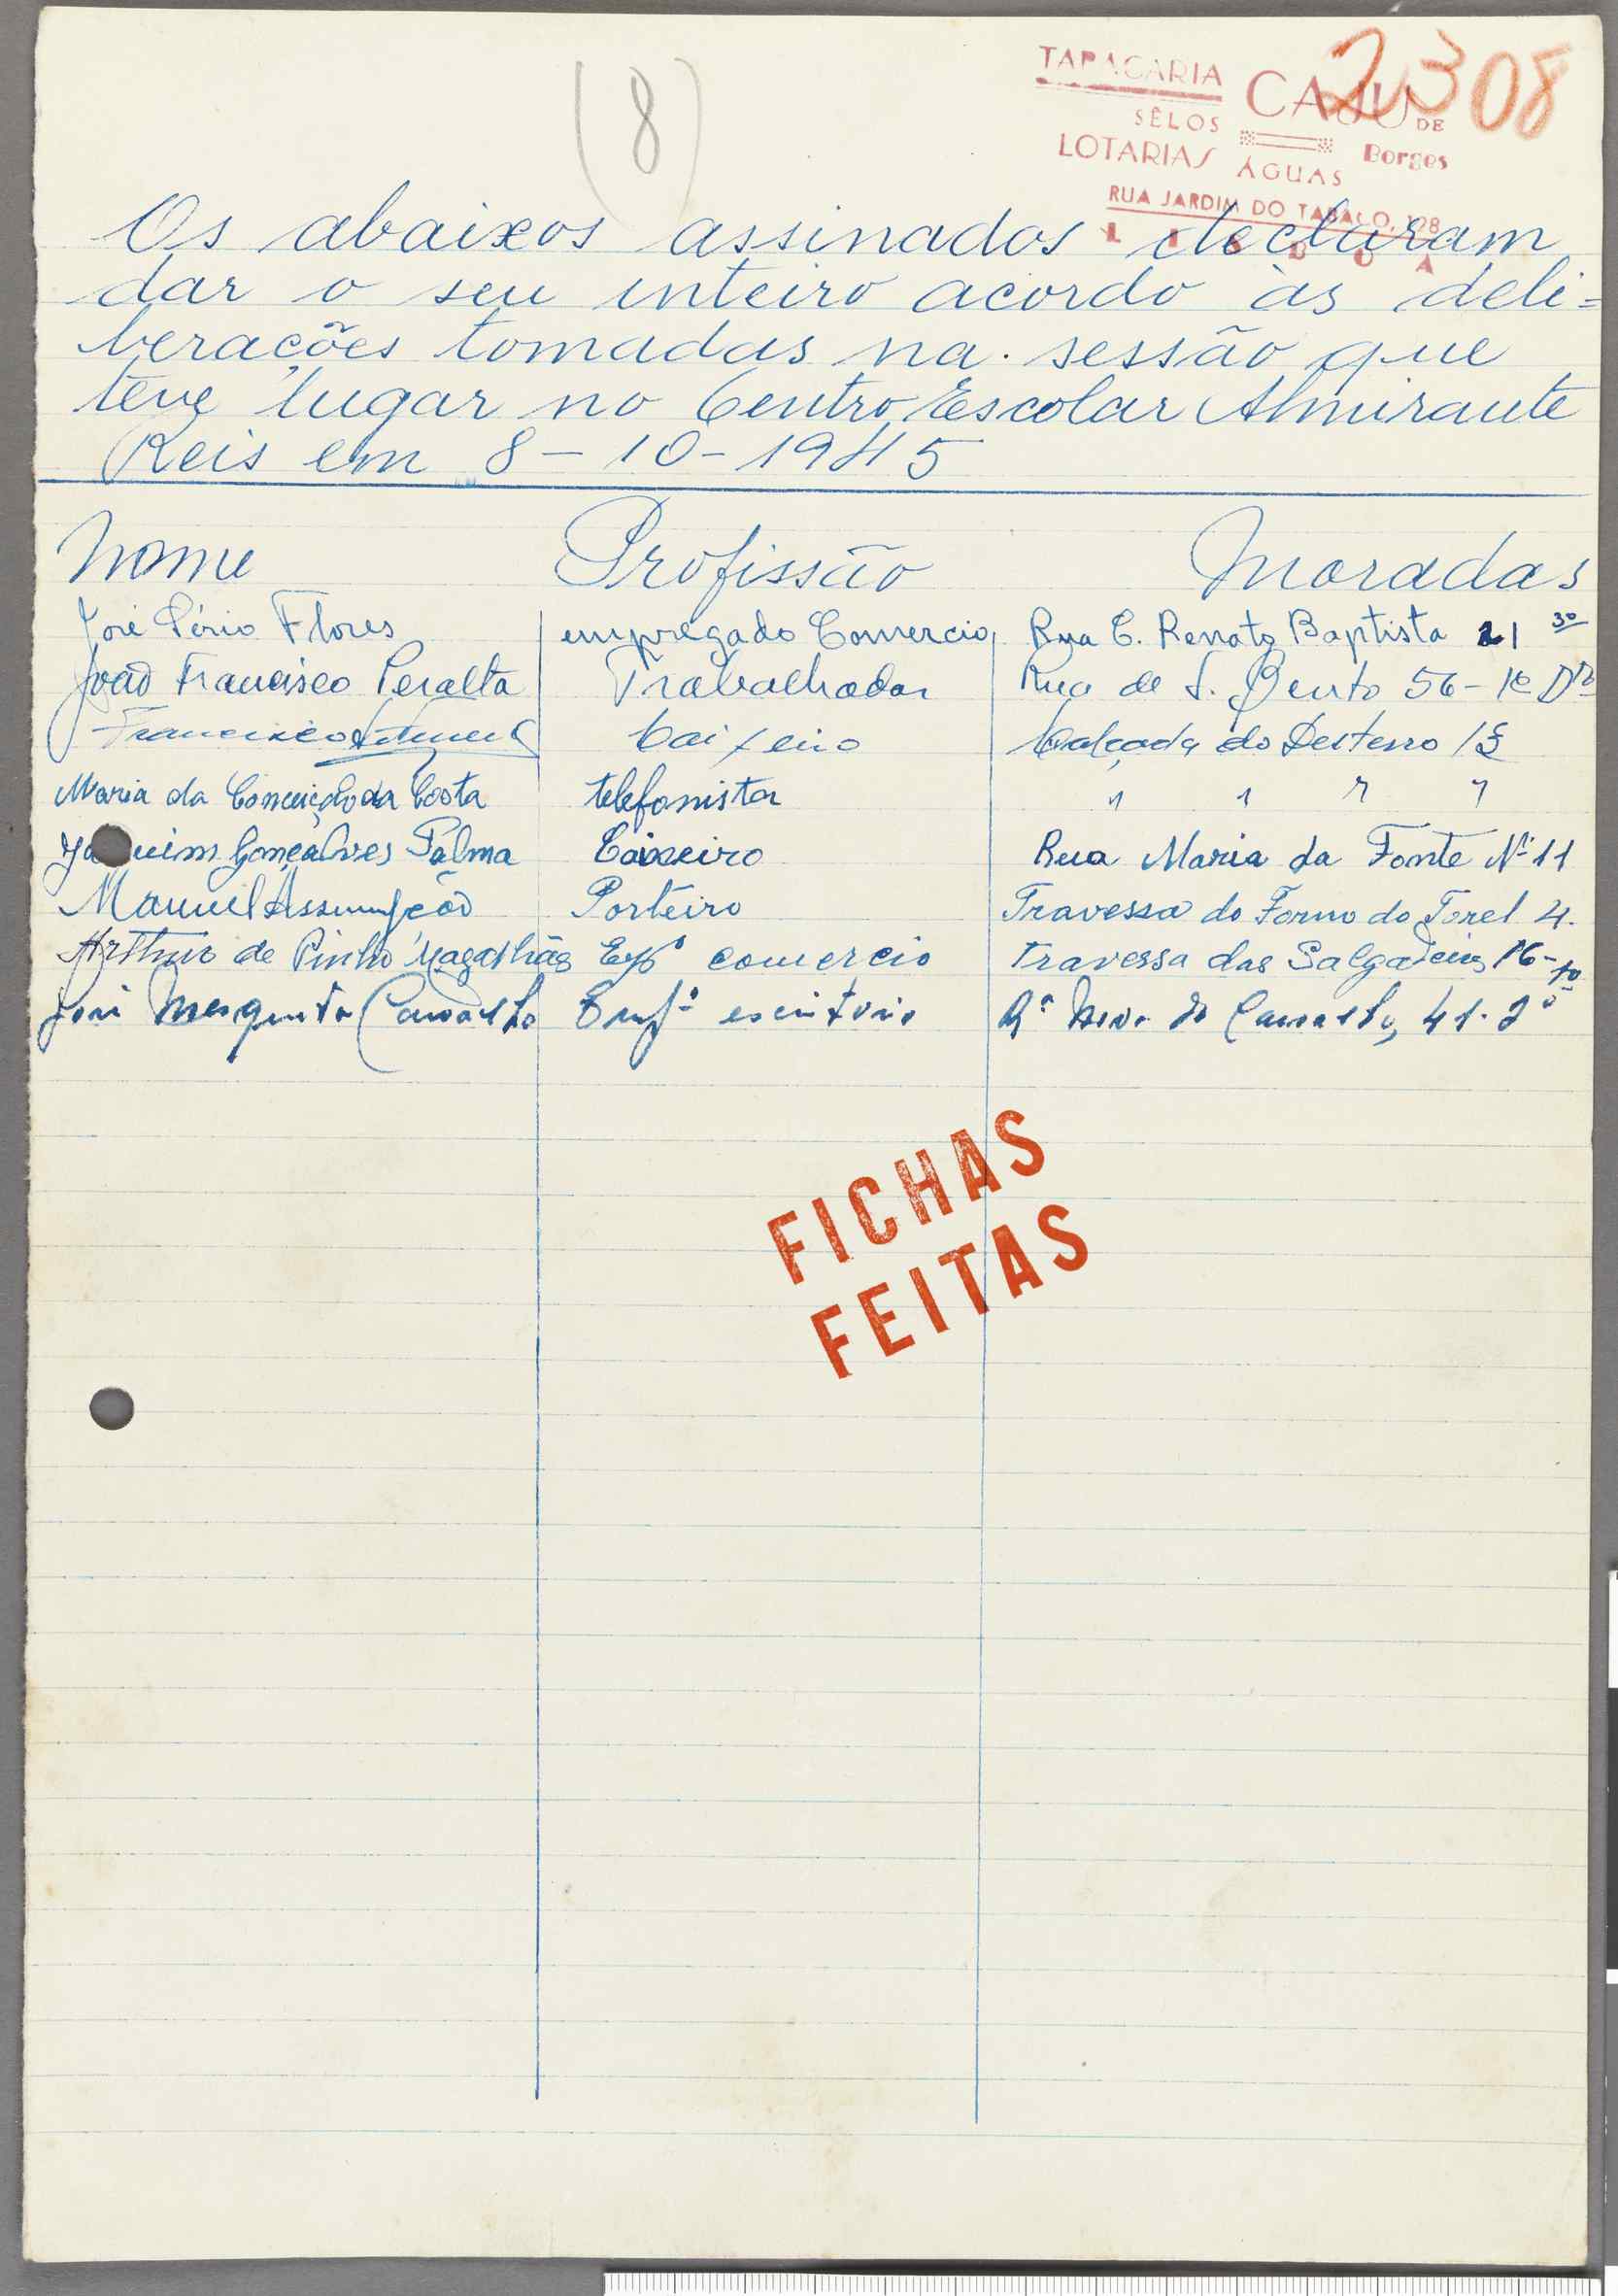 (8)
2308
TABACARIA
SÊLOS
LOTARIAS
CAJU DE
Borges
ÁGUAS
RUA JARDIM DO TABACO, 108
LISBOA
Os abaixos assinados declaram
dar o seu inteiro acordo às deli=
berações tomadas na sessão que
teve lugar no Centro Escolar Almirante
Reis em 8-10-1945
Nome Profissão Moradas
José Pério Flores empregado Comercio Rua C. Renato Baptista 21 3º
João Francisco Peralta Trabalhador Rua de S. Bento 56-1º Dto
Francisco Caixeiro Calçada do Desterro
Maria da Conceição da Costa telefonista " " " "
Joaquim Gonçalves Palma Caixeiro Rua Maria da Fonte Nº 11
Manuel Assumpção Porteiro Travessa do Forno do Torel 4.
Arthur de Pinho Magalhães Epº comercio Travessa das Salgadeiras 16-
José Mesquita Carvalho Empº escritorio Rª Nova do Carvalho, 41-2º
FICHAS
FEITAS